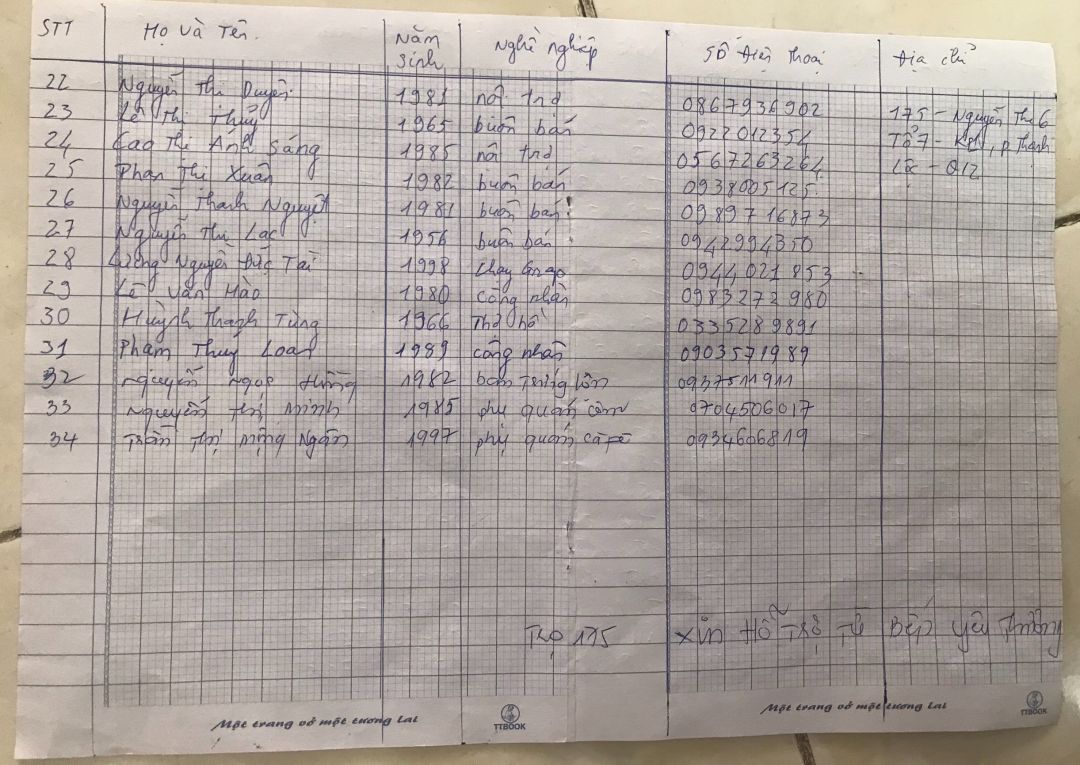 STT Họ và Tên. Năm sinh Nghề nghiệp Số Điện thoại Địa chỉ
22 Nguyễn Thị Duyên. 1981 nội trợ 0867936902 175 - Nguyễn Thị 6
23 Lê Thị Thủy 1965 buôn bán 0922012354 Tổ 7 - , P Thạnh
24 Cao Thị Ánh Sáng 1985 nội trợ 0567263264 Lộc - Q12
25 Phan Thị Xuân 1982 buôn bán 0938005125
26 Nguyễn Thanh Nguyệt 1981 buôn bán 0989716873
27 Nguyễn Thị Lạc 1956 buôn bán 0942994350
28 Nguyễn Đức Tài 1998 chạy 0944021853
29 Lê Văn Hào 1980 công nhân 0983272980
30 Huỳnh Thanh Tùng 1966 Thợ hồ 0335289891
31 Phạm Thuý Loan 1989 công nhân 0903571989
32 nguyễn ngọc Hưng 1982 bán trứng lộn 0937511911
33 nguyễn thị minh 1985 phụ quán cơm 0704506017
34 Trần thị mộng Ngân 1997 phụ quán cà fê 0934606819
Trọ 175 Xin Hỗ Trợ Từ Bếp yêu Thương
Một trang vở một tương lai TTBOOK Một trang vở một tương lai TTBOOK